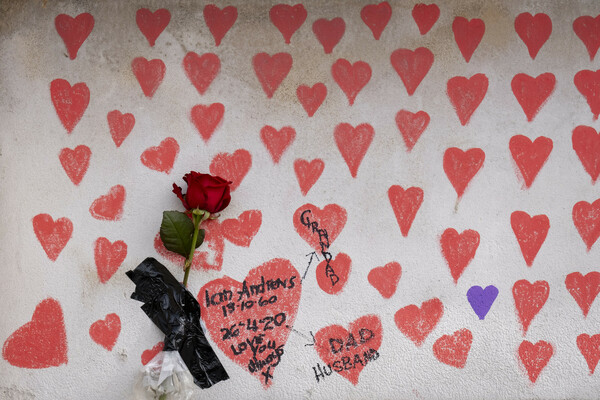 GRANDAD
Iain Andrews
13-10-60
26-4-20
Love you
Always
X
DAD
HUSBAND